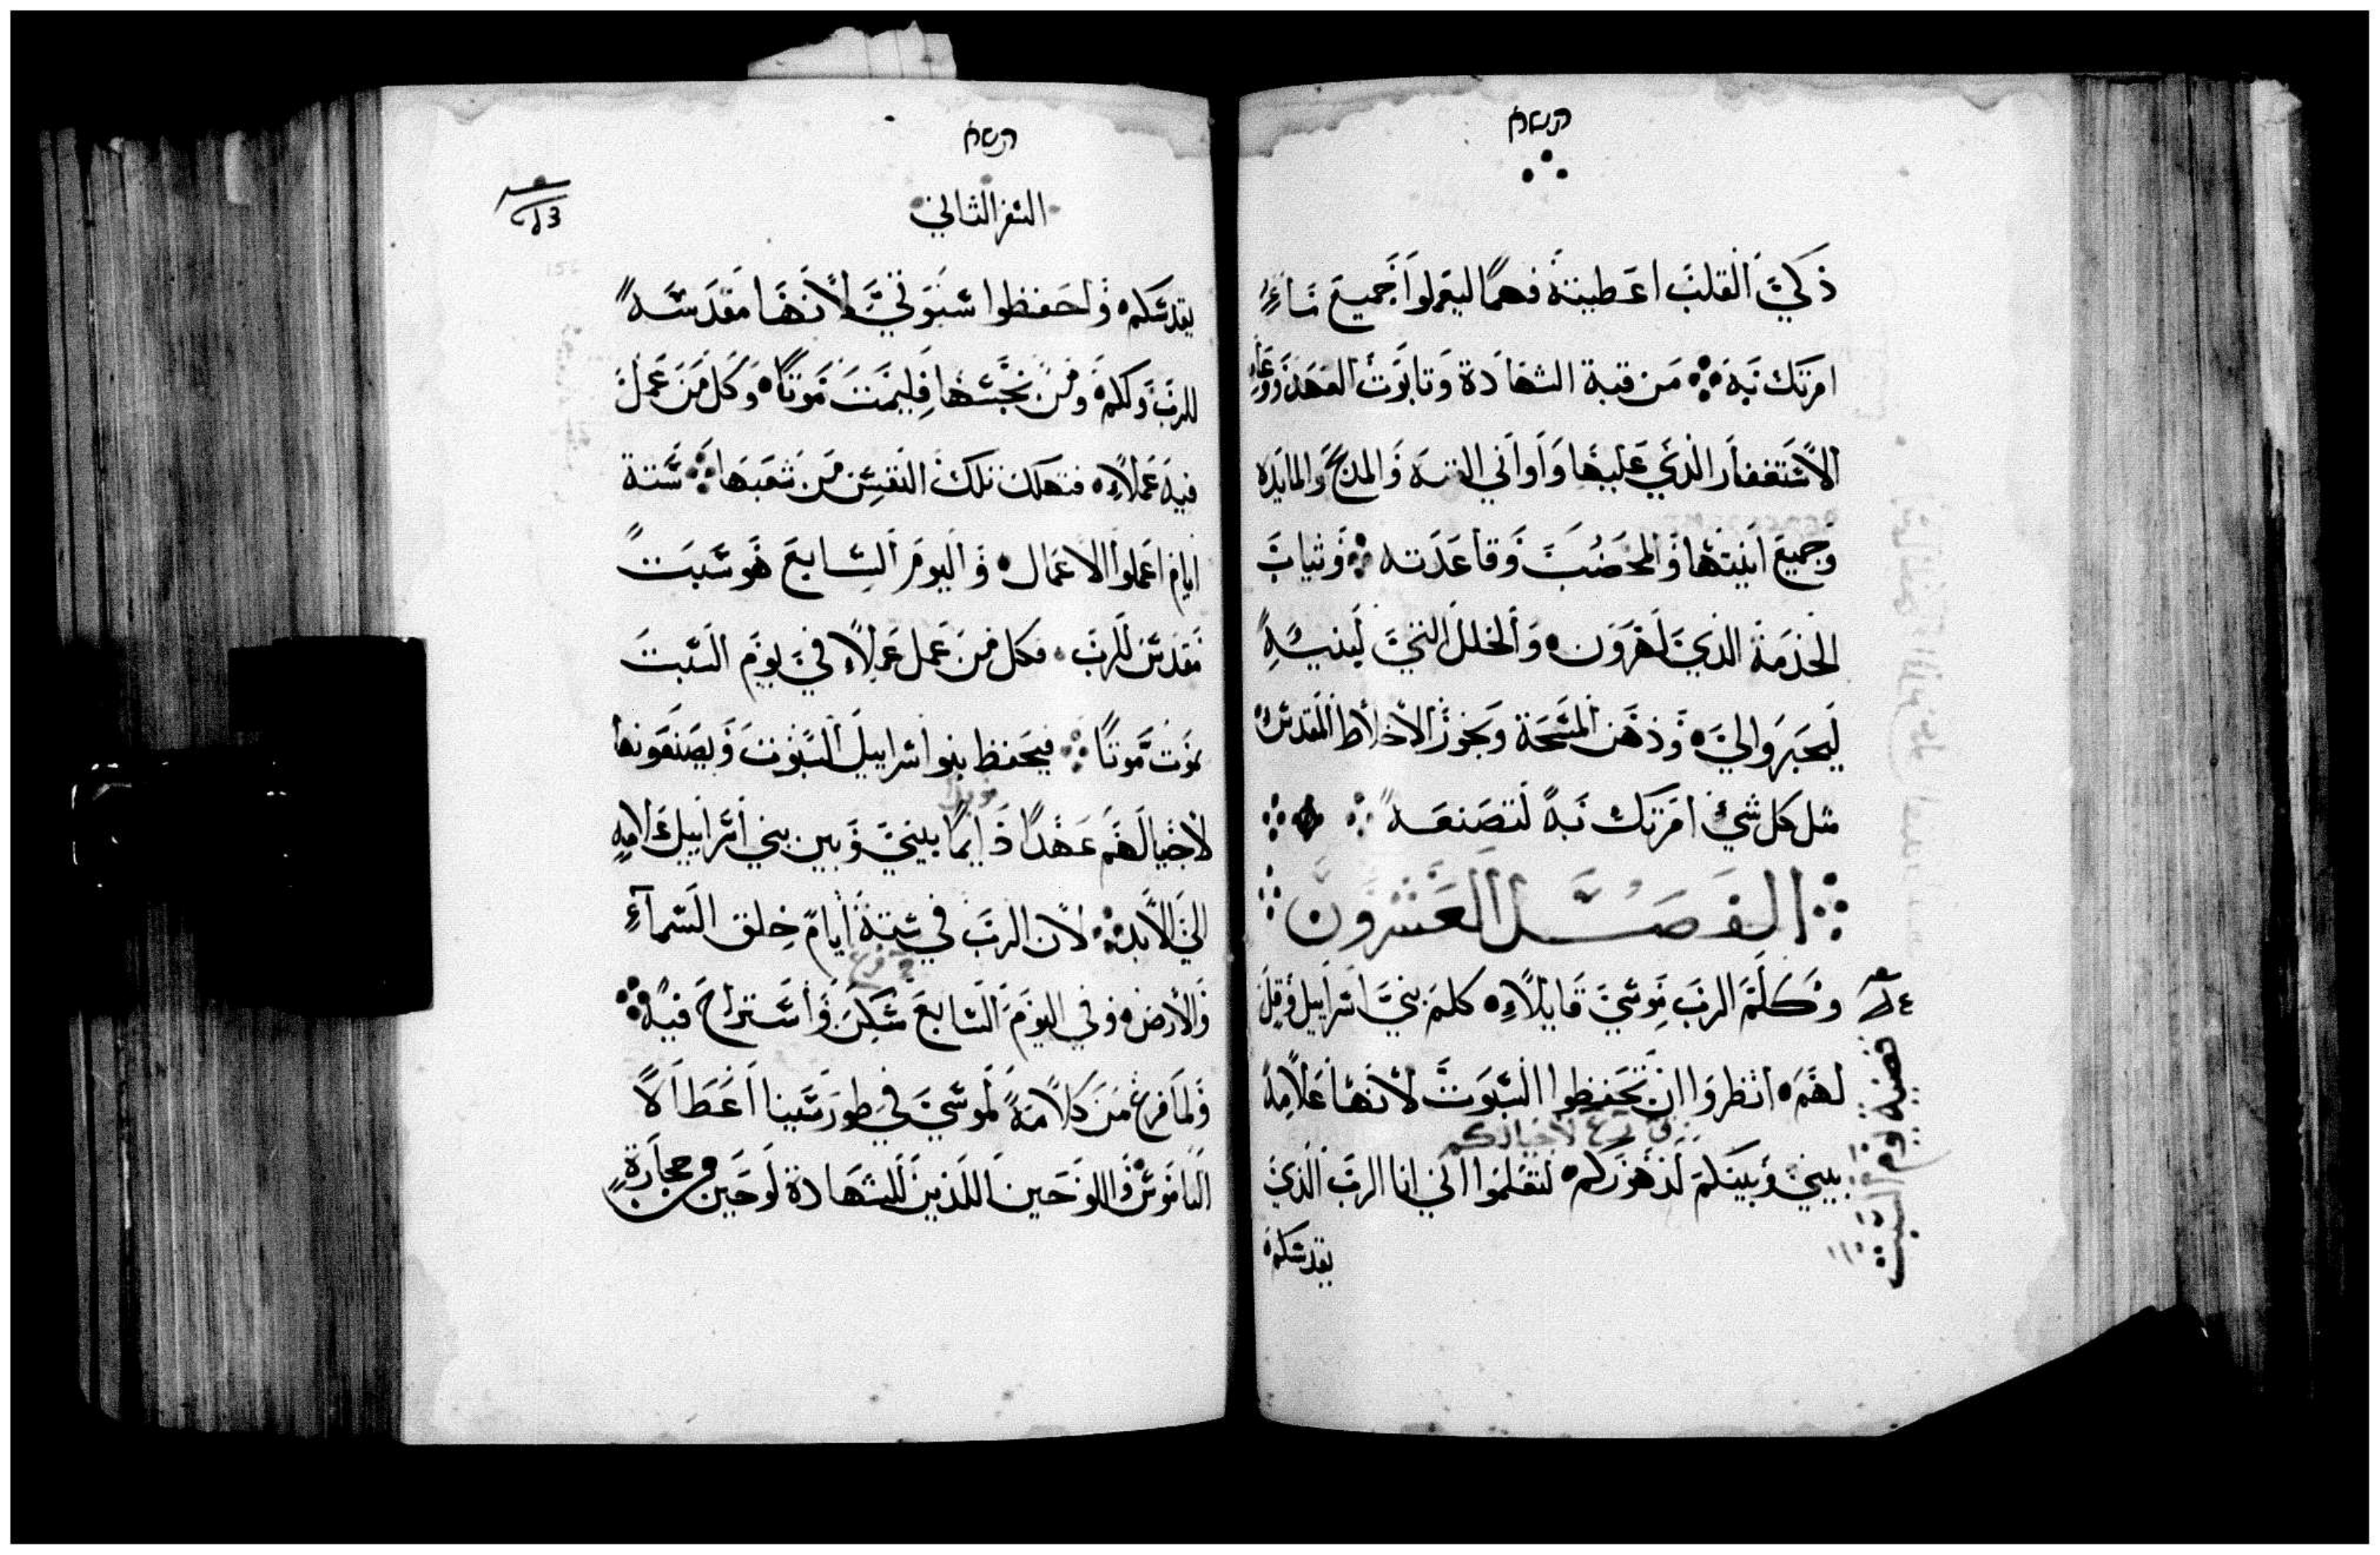 ذكيَّ القلب اعطيته فهمًا ليعملوا جميع ماءٍ
امرتك به ۞ من قبة الشهادة وتابوت العهد ووعاء
الاستغفار الذي عليها واواني القبه والمذبح والمايده
وجميع انيتها والمحضب وقاعدته ۞ وثياب
الخدمة الذي لهرون ⁕ والخلل التي لبنيه
ليحبروا لي ⁕ وذهن المسحة وبخور الاخلاط المقدسه
مثل كل شيء امرتك به لتصنعه ۞
الفصل العشرون
وكلم الرب موسي قايلاء ⁕ كلم بني اسراييل وقل
لهم ⁕ انظروا ان تحفظوا السبوت لانها علامة
لاجيالكم
بيني وبينكم لذهوركم ⁕ لتعلموا اني انا الرب الذي
يقدسكم
وصية يوم السبت
السفر الثاني
يقدسكم ⁕ واحفظوا سبوتي لانها مقدسة
للرب ولكم ⁕ ومن نجسها فليمت موتا ⁕ وكل من عمل
فيه عملاء ⁕ فتهلك تلك النفس من شعبها ۞ ستة
ايام اعملوا الاعمال ⁕ واليوم السابع هو سبت
مقدس للرب ⁕ فكل من عمل عملاء في يوم السبت
يموت موتا ۞ فيحفظ بنو اسراييل السبوت ويصنعونها
لاجيالهم عهدًا ذايما بيني وبين بني اسراييل علامه
الي الابد ۞ لان الرب في ستة ايام خلق السماء
والارض ⁕ وفي اليوم السابع سكن واستراح فيه ۞
ولما فرغ من كلامه لموسي في طور سينا اعطا لا
الناموس واللوحين اللذين للشهادة لوحين من حجارة